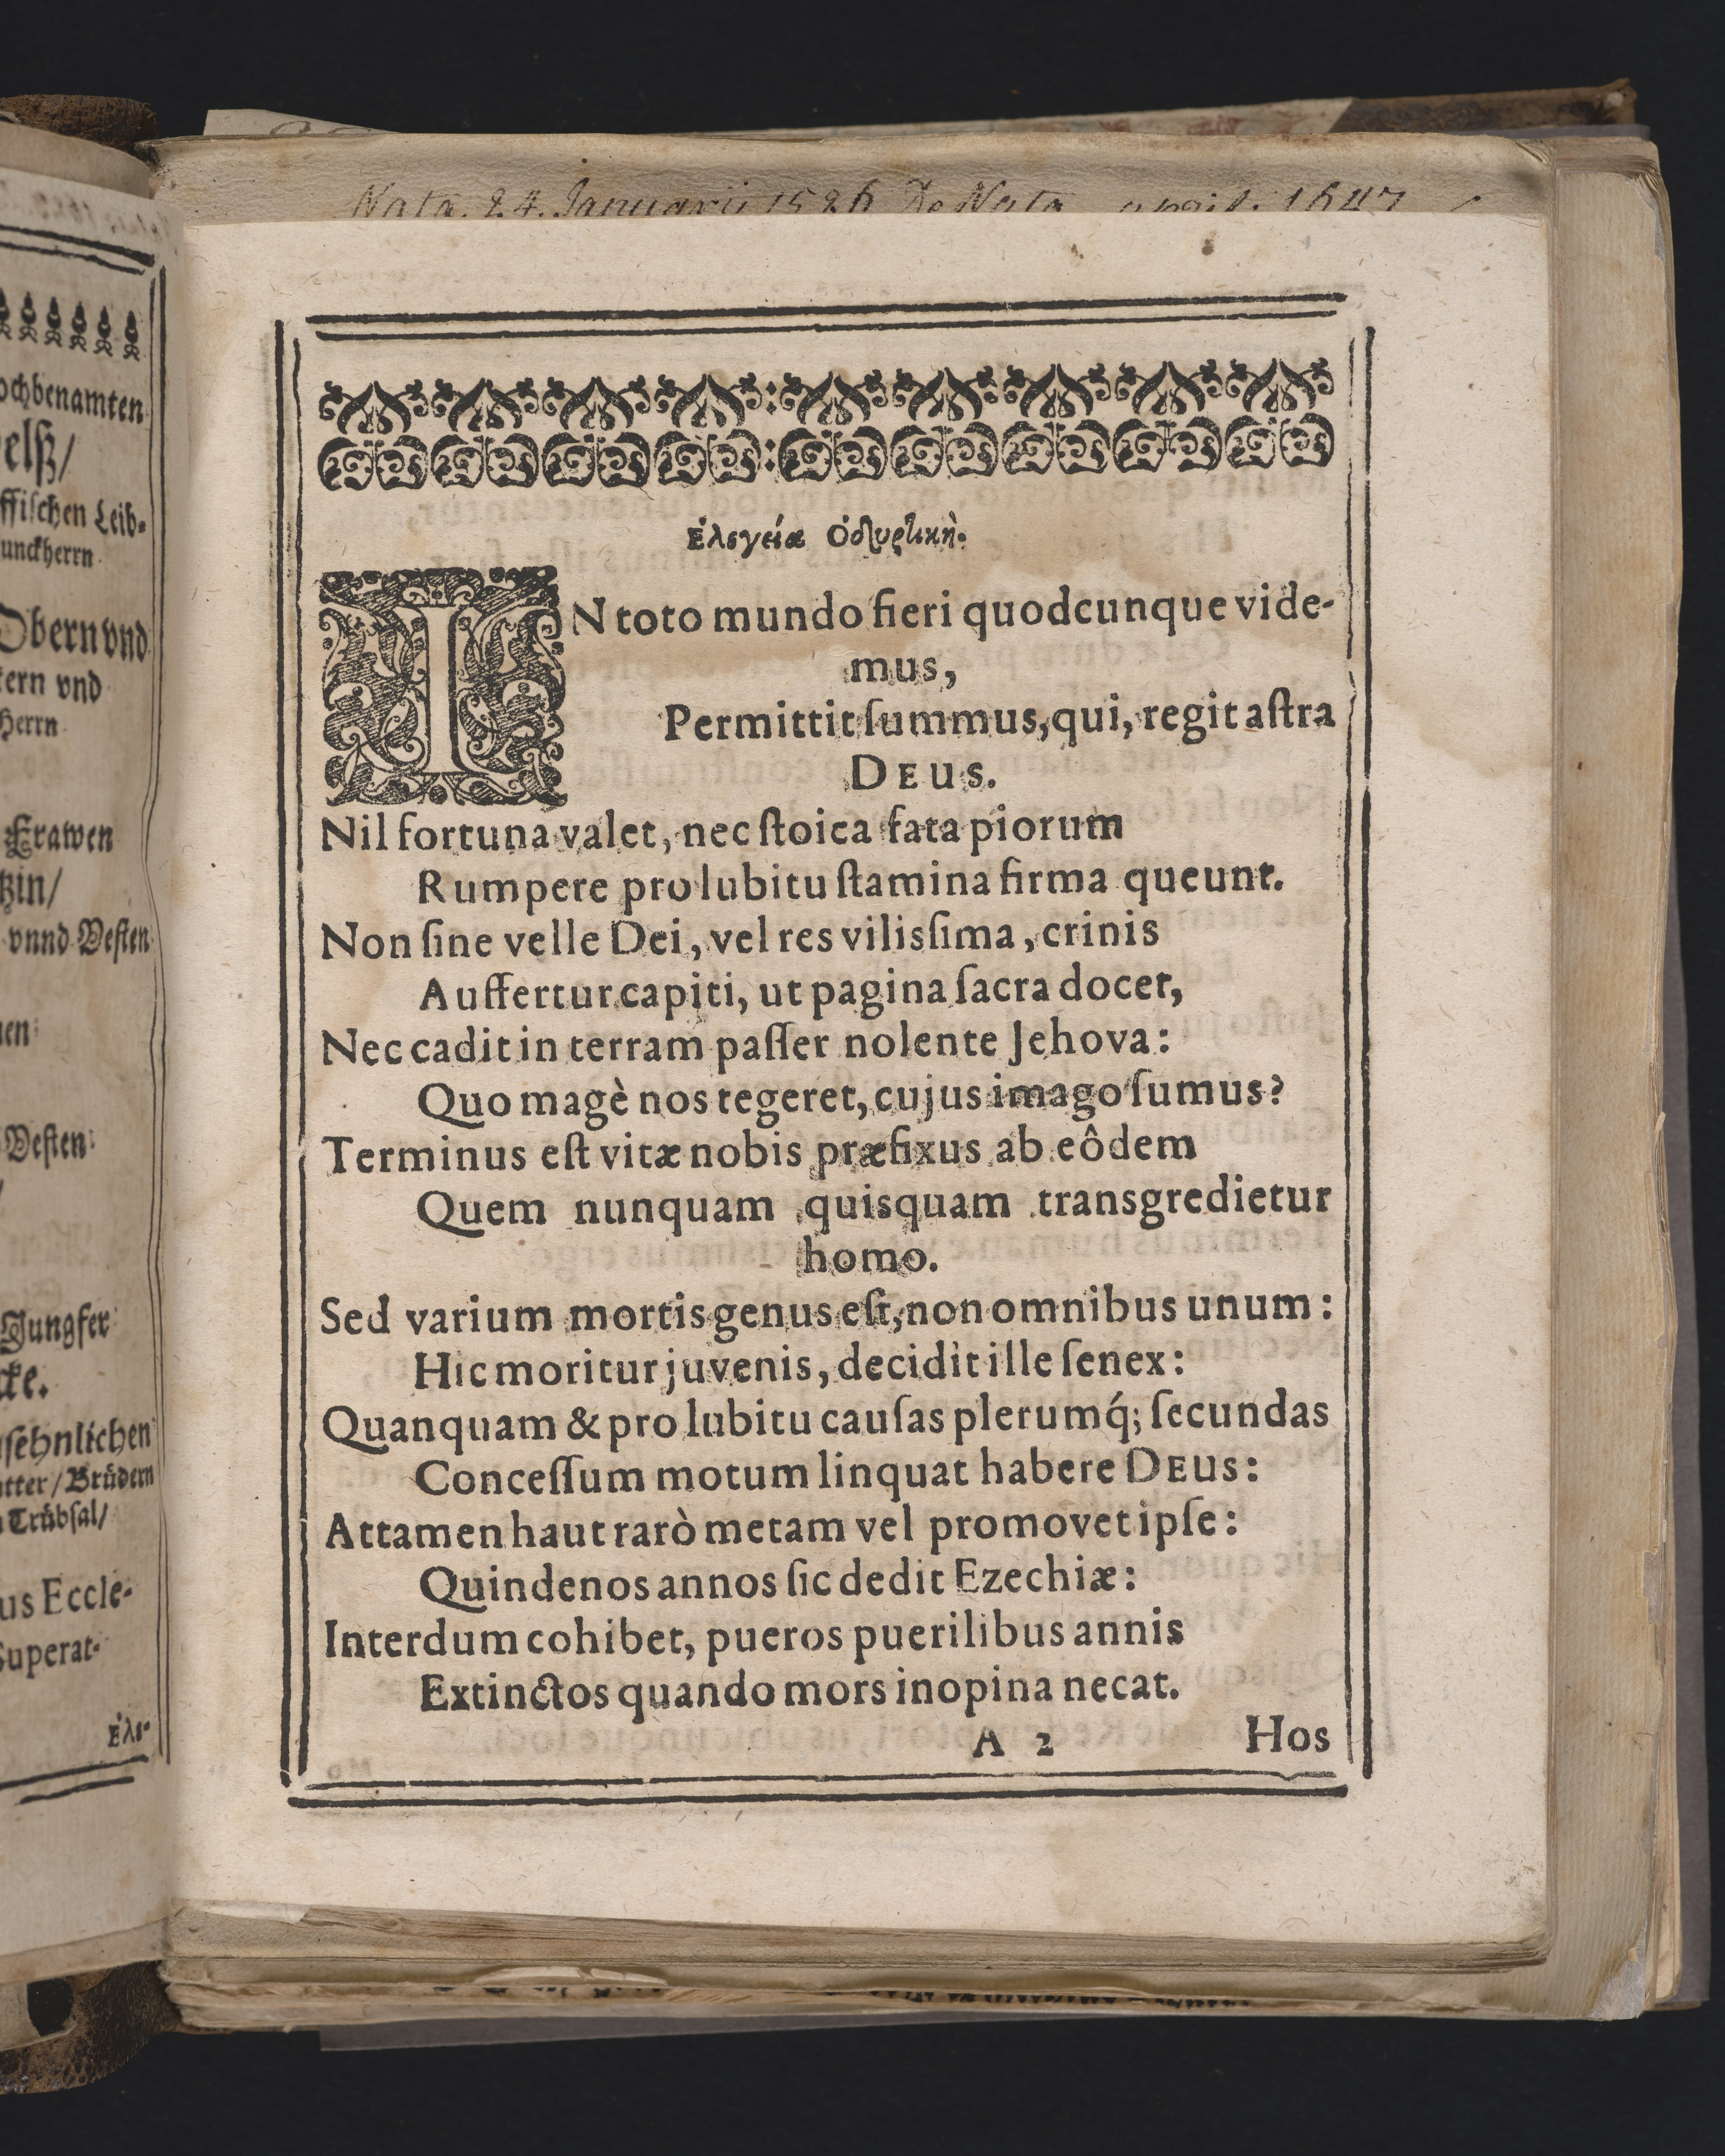 Nata. 24. Januarii 1526 De Nata april. 1647
ochbenamten
elß/
ffischen Leib-
unckherrn
Obern vnd
tern vnd
Herrn
Frawen
tzin/
vnnd Vesten
en:
Vesten:
/
Jungfer
cke.
sehnlichen
tter / Brüdern
Trübsal/
us Eccle-
Superat-
Ἐλε-
Ἐλεγεία Ὀδυρτικὴ.
IN toto mundo fieri quodcunque vide-
mus,
Permittit ſummus, qui, regit aſtra
DEUS.
Nil fortuna valet, nec ſtoica fata piorum
Rumpere pro lubitu ſtamina firma queunt.
Non ſine velle Dei, vel res vilisſima, crinis
Auffertur capiti, ut pagina ſacra docet,
Nec cadit in terram paſſer nolente Jehova:
Quo magè nos tegeret, cujus imago ſumus?
Terminus eſt vitæ nobis præfixus ab eôdem
Quem nunquam quisquam transgredietur
homo.
Sed varium mortis genus eſt, non omnibus unum:
Hic moritur juvenis, decidit ille ſenex:
Quanquam & pro lubitu cauſas plerumq́; ſecundas
Conceſſum motum linquat habere DEUS:
Attamen haut rarò metam vel promovet ipſe:
Quindenos annos ſic dedit Ezechiæ:
Interdum cohibet, pueros puerilibus annis
Extinctos quando mors inopina necat.
A 2 Hos